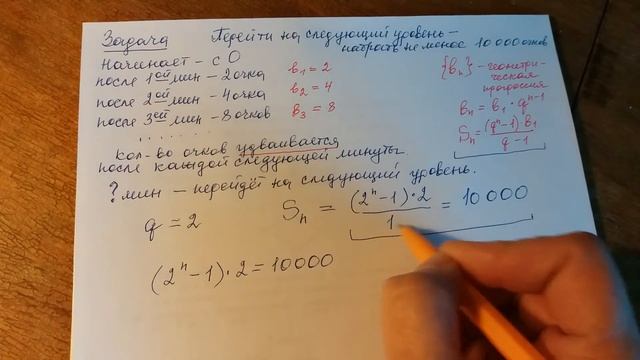 Задача Перейти на следующий уровень –
набрать не менее 10 000 очков
Начинает – с 0
после 1ой мин – 2 очка b₁ = 2
после 2ой мин – 4 очка b₂ = 4
после 3ей мин – 8 очков b₃ = 8
. . . . . . .
{bₙ} – геометри-
ческая
прогрессия
bₙ = b₁ · qⁿ⁻¹
Sₙ = (qⁿ – 1) b₁ / q – 1
кол-во очков удваивается
после каждой следующей минуты.
? мин – перейдёт на следующий уровень.
q = 2
Sₙ = (2ⁿ – 1) · 2 / 1 = 10 000
(2ⁿ – 1) · 2 = 10000